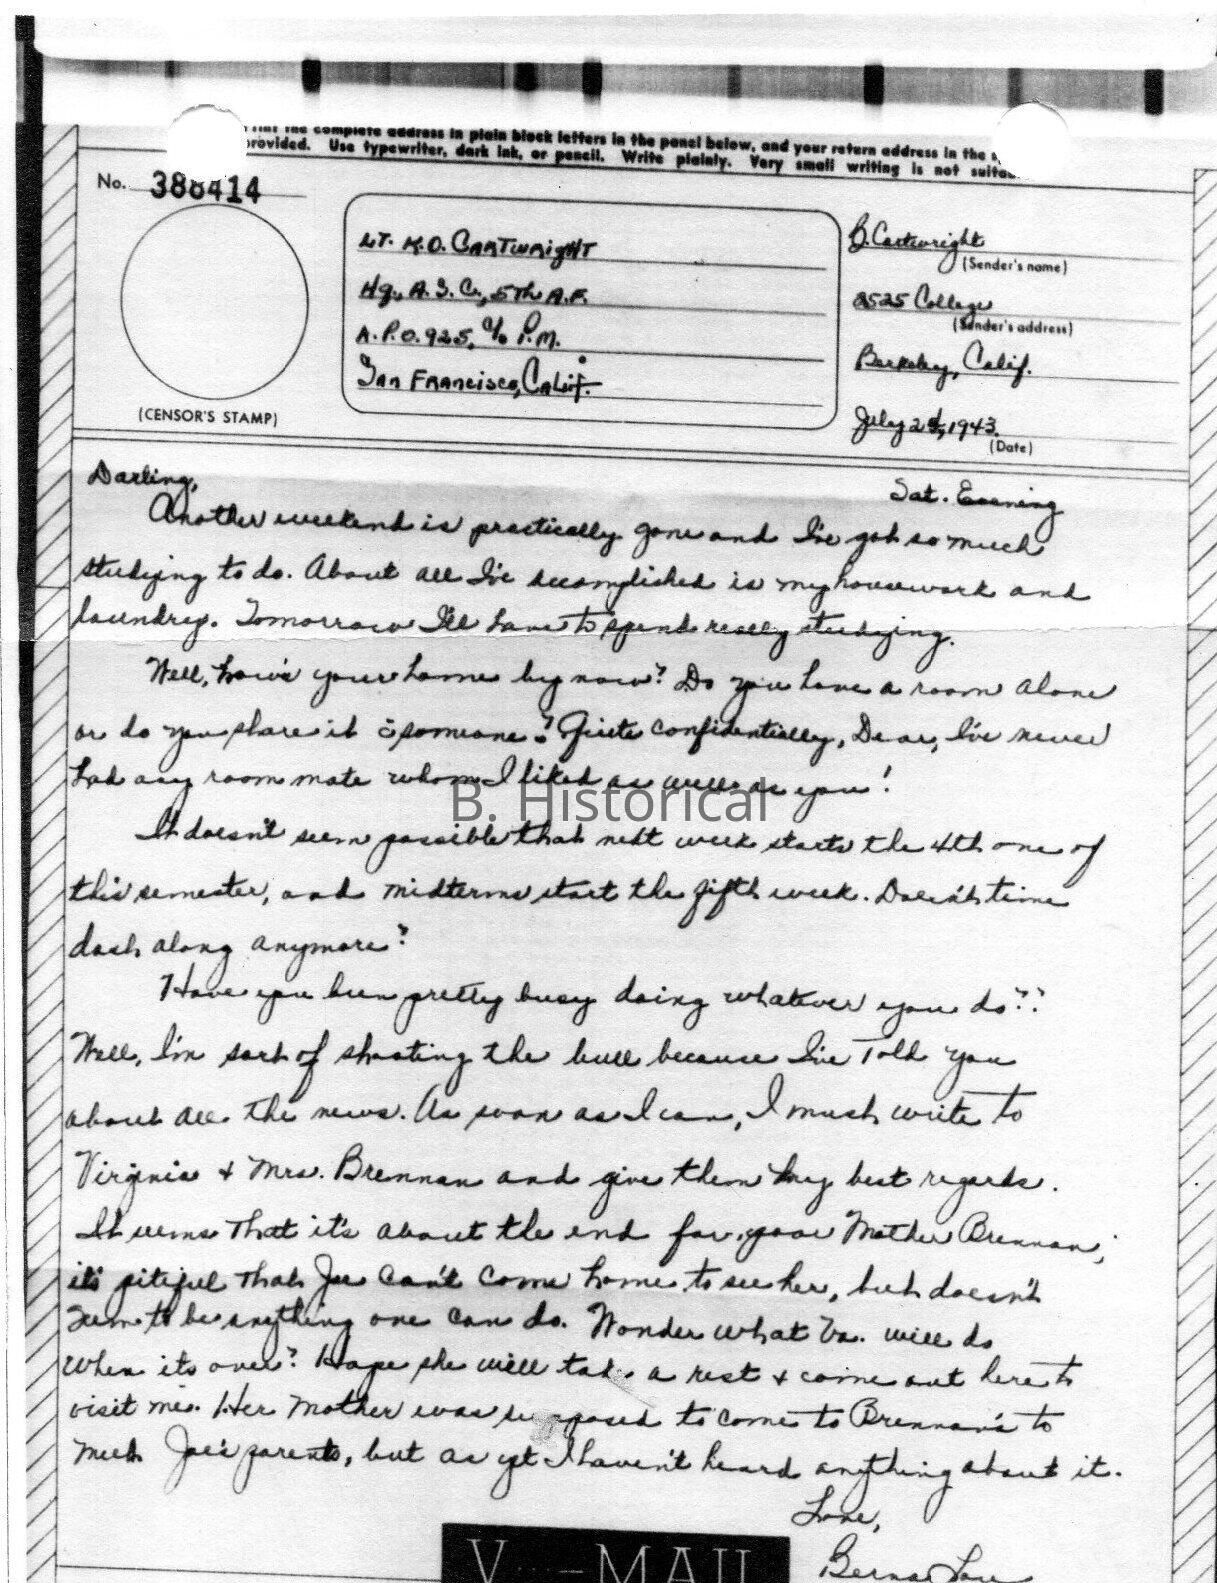 Print the complete address in plain block letters in the panel below, and your return address in the
provided. Use typewriter, dark ink, or pencil. Write plainly. Very small writing is not
No. 386414
(CENSOR'S STAMP)
LT. K.O. CARTWRIGHT
Hq. A.S.C., 5th A.F.
A.P.O. 925, c/o P.M.
SAN FRANCISCO, CALIF.
B. Cartwright
(Sender's name)
2525 College
(Sender's address)
Berkeley, Calif.
July 24, 1943.
(Date)
Sat. Evening
Darling,
Another weekend is practically gone and I've got so much
studying to do. About all I've accomplished is my housework and
laundry. Tomorrow I'll have to spend really studying.
Well, how's your home by now? Do you have a room alone
or do you share it c̄ someone? Quite confidentially, Dear, I've never
had any room mate whom I liked as well as you!
B. Historical
It doesn't seem possible that next week starts the 4th one of
this semester, and midterms start the fifth week. Doesn't time
dash along anymore?
Have you been pretty busy doing whatever you do??
Well, I'm sort of shooting the bull because I've told you
about all the news. As soon as I can, I must write to
Virginia & Mrs. Brennan and give them my best regards.
It seems that it's about the end for poor Mother Brennan;
it's pitiful that Joe can't come home to see her, but doesn't
seem to be anything one can do. Wonder what Va. will do
when its over? Hope she will take a rest & come out here to
visit me. Her mother was supposed to come to Brennan's to
meet Joe's parents, but as yet I haven't heard anything about it.
Love,
V-MAIL